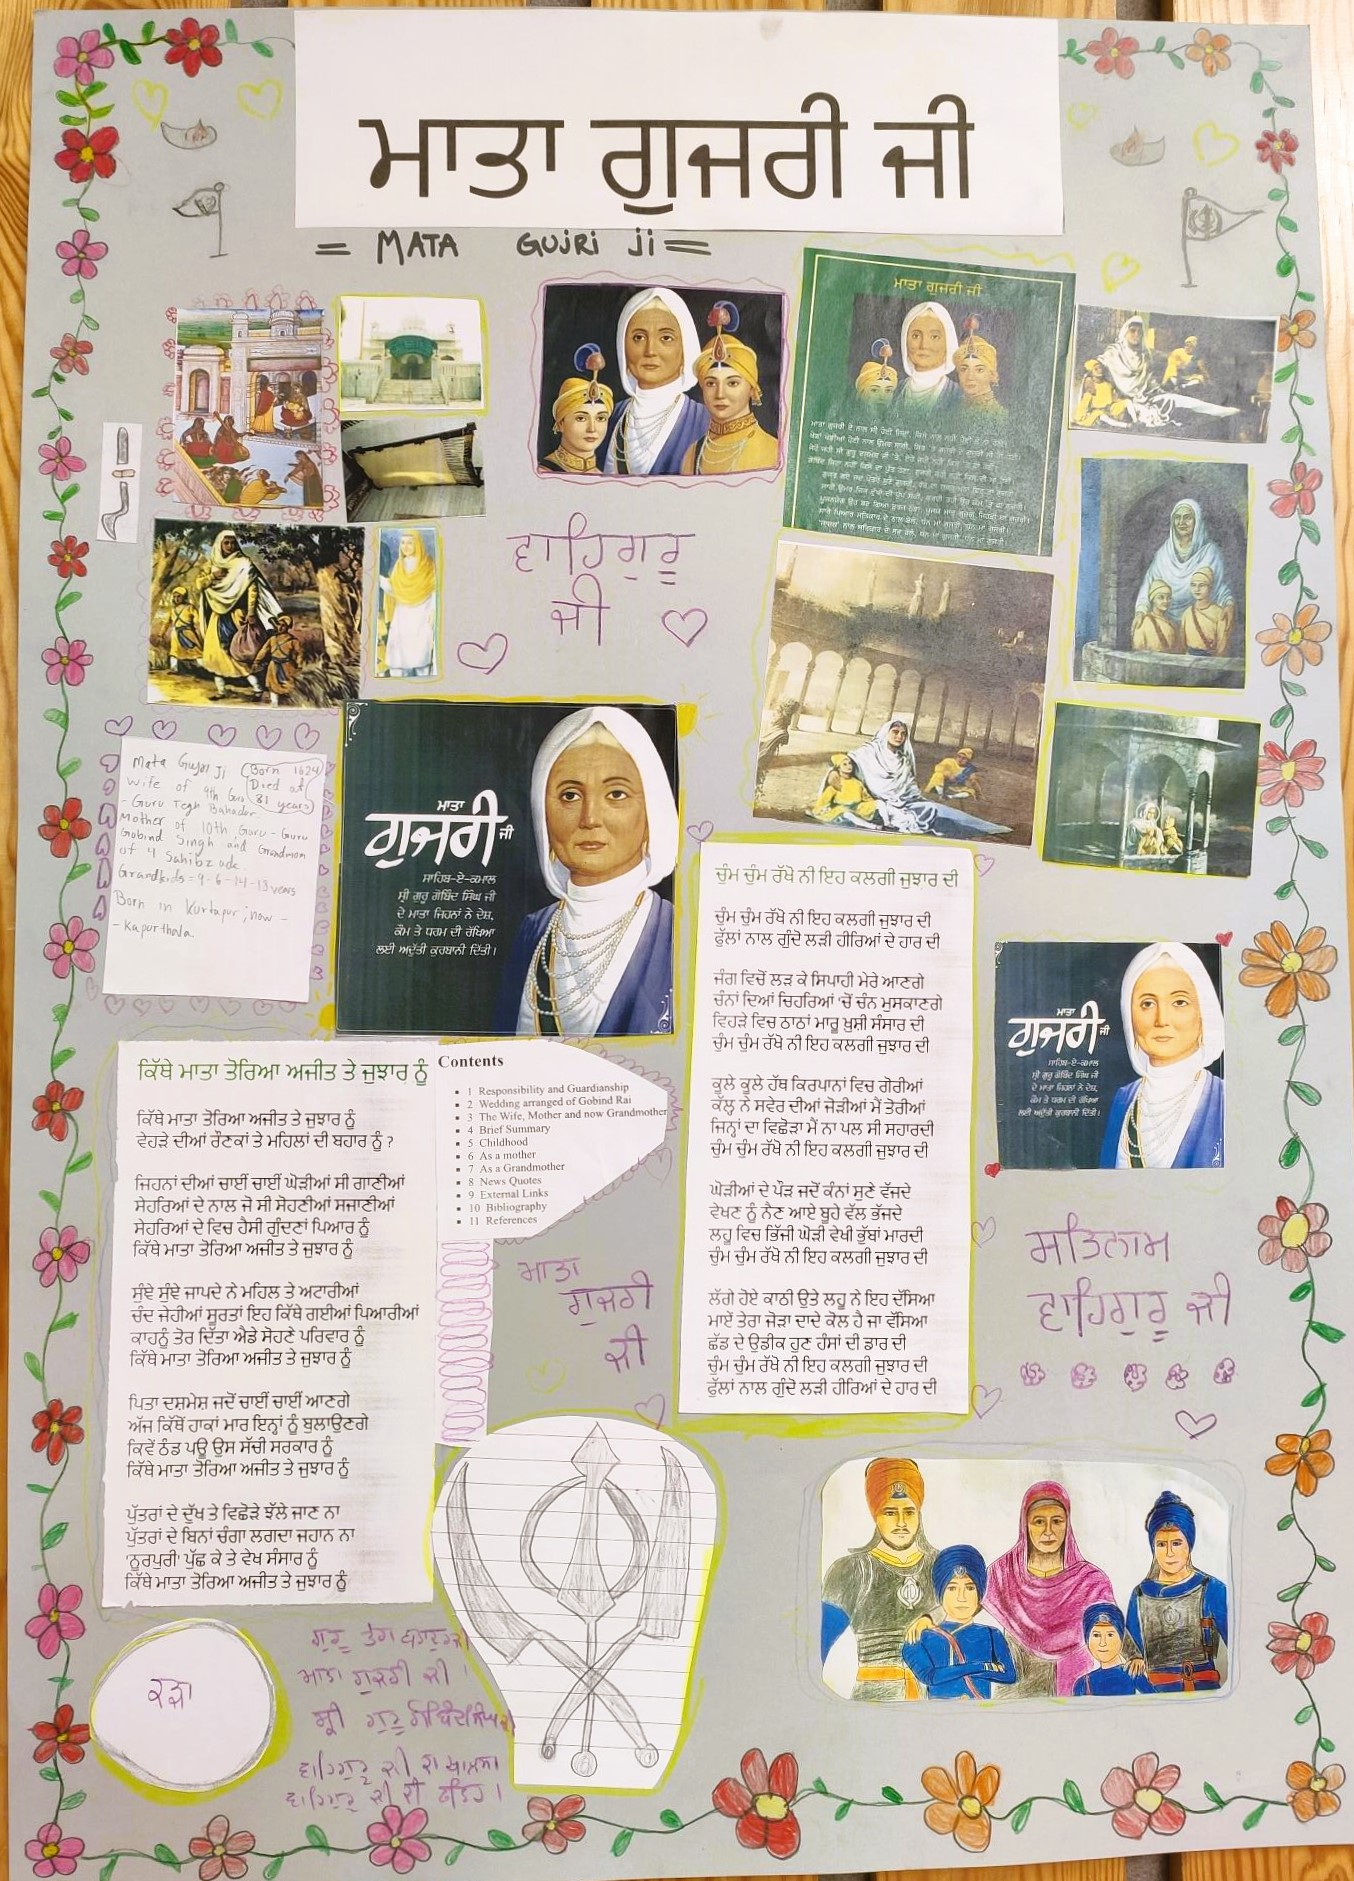 ਮਾਤਾ ਗੁਜਰੀ ਜੀ
= MATA GUJRI Ji =
ਮਾਤਾ ਗੁਜਰੀ ਜੀ
ਵਾਹਿਗੁਰੂ
ਜੀ
Mata Gujri Ji
Born 1624
Died at
81 years
Wife of 9th Guru
- Guru Tegh Bahader
Mother of 10th Guru - Guru
Gobind Singh and Grandmom
of 4 Sahibzade
Grandkids = 9 - 6 - 14 - 18 years
Born in Kurtapur; now -
- Kapurthala
ਮਾਤਾ
ਗੁਜਰੀ ਜੀ
ਸਾਹਿਬ-ਏ-ਕਮਾਲ
ਸ੍ਰੀ ਗੁਰੂ ਗੋਬਿੰਦ ਸਿੰਘ ਜੀ
ਦੇ ਮਾਤਾ ਜਿਹਨਾਂ ਨੇ ਦੇਸ਼,
ਕੌਮ ਤੇ ਧਰਮ ਦੀ ਰੱਖਿਆ
ਲਈ ਅਦੁੱਤੀ ਕੁਰਬਾਨੀ ਦਿੱਤੀ।
ਚੁੰਮ ਚੁੰਮ ਰੱਖੋ ਨੀ ਇਹ ਕਲਗੀ ਜੁਝਾਰ ਦੀ
ਚੁੰਮ ਚੁੰਮ ਰੱਖੋ ਨੀ ਇਹ ਕਲਗੀ ਜੁਝਾਰ ਦੀ
ਫੁੱਲਾਂ ਨਾਲ ਗੁੰਦੋ ਲੜੀ ਹੀਰਿਆਂ ਦੇ ਹਾਰ ਦੀ
ਜੰਗ ਵਿਚੋਂ ਲੜ ਕੇ ਸਿਪਾਹੀ ਮੇਰੇ ਆਣਗੇ
ਚੰਨਾਂ ਦਿਆਂ ਚਿਹਰਿਆਂ 'ਚੋਂ ਚੰਨ ਮੁਸਕਾਣਗੇ
ਵਿਹੜੇ ਵਿਚ ਠਾਠਾਂ ਮਾਰੂ ਖ਼ੁਸ਼ੀ ਸੰਸਾਰ ਦੀ
ਚੁੰਮ ਚੁੰਮ ਰੱਖੋ ਨੀ ਇਹ ਕਲਗੀ ਜੁਝਾਰ ਦੀ
ਕੂਲੇ ਕੂਲੇ ਹੱਥ ਕਿਰਪਾਨਾਂ ਵਿਚ ਗੋਰੀਆਂ
ਕੱਲ੍ਹ ਨੇ ਸਵੇਰ ਦੀਆਂ ਜੋੜੀਆਂ ਮੈਂ ਤੋਰੀਆਂ
ਜਿਨ੍ਹਾਂ ਦਾ ਵਿਛੋੜਾ ਮੈਂ ਨਾ ਪਲ ਸੀ ਸਹਾਰਦੀ
ਚੁੰਮ ਚੁੰਮ ਰੱਖੋ ਨੀ ਇਹ ਕਲਗੀ ਜੁਝਾਰ ਦੀ
ਘੋੜੀਆਂ ਦੇ ਪੌੜ ਜਦੋਂ ਕੰਨਾਂ ਸੁਣੇ ਵੱਜਦੇ
ਵੇਖਣ ਨੂੰ ਨੈਣ ਆਏ ਬੂਹੇ ਵੱਲ ਭੱਜਦੇ
ਲਹੂ ਵਿਚ ਭਿੱਜੀ ਘੋੜੀ ਵੇਖੀ ਭੁੱਬਾਂ ਮਾਰਦੀ
ਚੁੰਮ ਚੁੰਮ ਰੱਖੋ ਨੀ ਇਹ ਕਲਗੀ ਜੁਝਾਰ ਦੀ
ਲੱਗੇ ਹੋਏ ਕਾਠੀ ਉਤੇ ਲਹੂ ਨੇ ਇਹ ਦੱਸਿਆ
ਮਾਏਂ ਤੇਰਾ ਜੋੜਾ ਦਾਦੇ ਕੋਲ ਹੈ ਜਾ ਵੱਸਿਆ
ਛੱਡ ਦੇ ਉਡੀਕ ਹੁਣ ਹੰਸਾਂ ਦੀ ਡਾਰ ਦੀ
ਚੁੰਮ ਚੁੰਮ ਰੱਖੋ ਨੀ ਇਹ ਕਲਗੀ ਜੁਝਾਰ ਦੀ
ਫੁੱਲਾਂ ਨਾਲ ਗੁੰਦੋ ਲੜੀ ਹੀਰਿਆਂ ਦੇ ਹਾਰ ਦੀ
ਮਾਤਾ
ਗੁਜਰੀ ਜੀ
ਸਾਹਿਬ-ਏ-ਕਮਾਲ
ਸ੍ਰੀ ਗੁਰੂ ਗੋਬਿੰਦ ਸਿੰਘ ਜੀ
ਦੇ ਮਾਤਾ ਜਿਹਨਾਂ ਨੇ ਦੇਸ਼,
ਕੌਮ ਤੇ ਧਰਮ ਦੀ ਰੱਖਿਆ
ਲਈ ਅਦੁੱਤੀ ਕੁਰਬਾਨੀ ਦਿੱਤੀ।
ਕਿੱਥੇ ਮਾਤਾ ਤੋਰਿਆ ਅਜੀਤ ਤੇ ਜੁਝਾਰ ਨੂੰ
ਕਿੱਥੇ ਮਾਤਾ ਤੋਰਿਆ ਅਜੀਤ ਤੇ ਜੁਝਾਰ ਨੂੰ
ਵੇਹੜੇ ਦੀਆਂ ਰੌਣਕਾਂ ਤੇ ਮਹਿਲਾਂ ਦੀ ਬਹਾਰ ਨੂੰ ?
ਜਿਹਨਾਂ ਦੀਆਂ ਚਾਈਂ ਚਾਈਂ ਘੋੜੀਆਂ ਸੀ ਗਾਣੀਆਂ
ਸੇਹਰਿਆਂ ਦੇ ਨਾਲ ਜੋ ਸੀ ਸੋਹਣੀਆਂ ਸਜਾਣੀਆਂ
ਸੇਹਰਿਆਂ ਦੇ ਵਿਚ ਹੈਸੀ ਗੁੰਦਣਾਂ ਪਿਆਰ ਨੂੰ
ਕਿੱਥੇ ਮਾਤਾ ਤੋਰਿਆ ਅਜੀਤ ਤੇ ਜੁਝਾਰ ਨੂੰ
ਸੁੰਞੇ ਸੁੰਞੇ ਜਾਪਦੇ ਨੇ ਮਹਿਲ ਤੇ ਅਟਾਰੀਆਂ
ਚੰਦ ਜੇਹੀਆਂ ਸੂਰਤਾਂ ਇਹ ਕਿੱਥੇ ਗਈਆਂ ਪਿਆਰੀਆਂ
ਕਾਹਨੂੰ ਤੋਰ ਦਿੱਤਾ ਐਡੇ ਸੋਹਣੇ ਪਰਿਵਾਰ ਨੂੰ
ਕਿੱਥੇ ਮਾਤਾ ਤੋਰਿਆ ਅਜੀਤ ਤੇ ਜੁਝਾਰ ਨੂੰ
ਪਿਤਾ ਦਸ਼ਮੇਸ਼ ਜਦੋਂ ਚਾਈਂ ਚਾਈਂ ਆਣਗੇ
ਅੱਜ ਕਿੱਥੋਂ ਹਾਕਾਂ ਮਾਰ ਇਨ੍ਹਾਂ ਨੂੰ ਬੁਲਾਉਣਗੇ
ਕਿਵੇਂ ਠੰਡ ਪਊ ਉਸ ਸੱਚੀ ਸਰਕਾਰ ਨੂੰ
ਕਿੱਥੇ ਮਾਤਾ ਤੋਰਿਆ ਅਜੀਤ ਤੇ ਜੁਝਾਰ ਨੂੰ
ਪੁੱਤਰਾਂ ਦੇ ਦੁੱਖ ਤੇ ਵਿਛੋੜੇ ਝੱਲੇ ਜਾਣ ਨਾ
ਪੁੱਤਰਾਂ ਦੇ ਬਿਨਾਂ ਚੰਗਾ ਲਗਦਾ ਜਹਾਨ ਨਾ
'ਨੂਰਪੁਰੀ' ਪੁੱਛ ਕੇ ਤੇ ਵੇਖ ਸੰਸਾਰ ਨੂੰ
ਕਿੱਥੇ ਮਾਤਾ ਤੋਰਿਆ ਅਜੀਤ ਤੇ ਜੁਝਾਰ ਨੂੰ
Contents
1 Responsibility and Guardianship
2 Wedding arranged of Gobind Rai
3 The Wife, Mother and now Grandmother
4 Brief Summary
5 Childhood
6 As a mother
7 As a Grandmother
8 News Quotes
9 External Links
10 Bibliography
11 References
ਮਾਤਾ
ਗੁਜਰੀ
ਜੀ
ਸਤਿਨਾਮ
ਵਾਹਿਗੁਰੂ ਜੀ
ਕੜਾ
ਗੁਰੂ ਤੇਗ ਬਹਾਦਰ ਜੀ
ਮਾਤਾ ਗੁਜਰੀ ਜੀ।
ਸ੍ਰੀ ਗੁਰੂ ਗੋਬਿੰਦ ਸਿੰਘ ਜੀ
ਵਾਹਿਗੁਰੂ ਜੀ ਦਾ ਖਾਲਸਾ
ਵਾਹਿਗੁਰੂ ਜੀ ਦੀ ਫਤਿਹ।